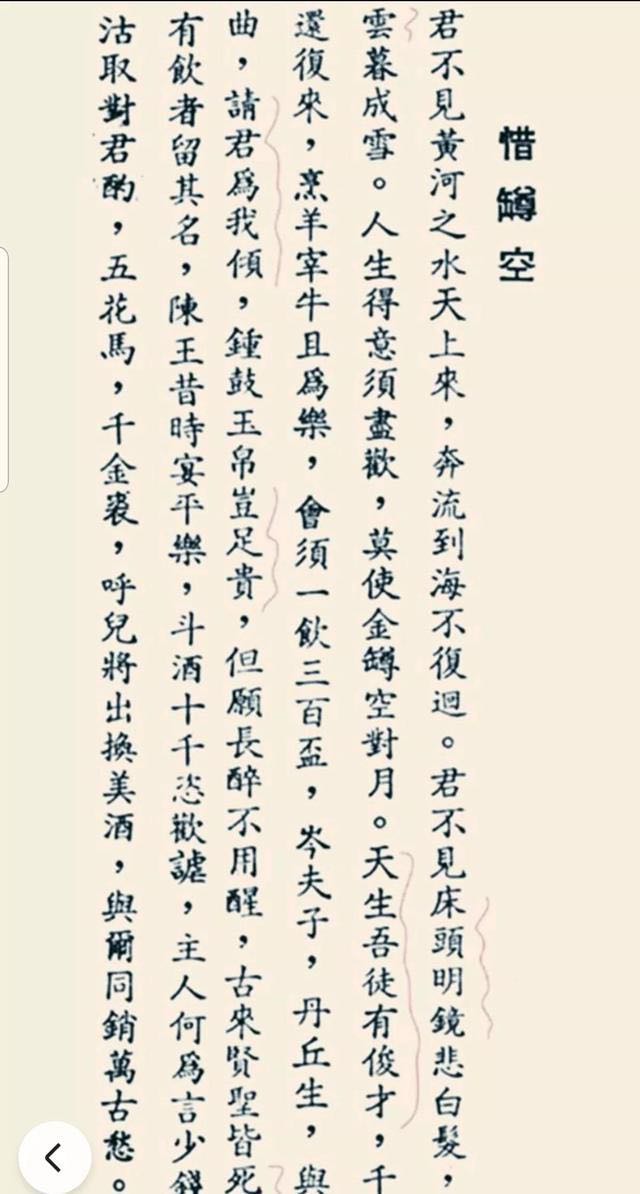 惜罇空
君不見黃河之水天上來，奔流到海不復迴。君不見床頭明鏡悲白髮，
雲暮成雪。人生得意須盡歡，莫使金罇空對月。天生吾徒有俊才，千
還復來，烹羊宰牛且爲樂，會須一飲三百盃，岑夫子，丹丘生，與
曲，請君爲我傾，鍾鼓玉帛豈足貴，但願長醉不用醒，古來賢聖皆死
有飲者留其名，陳王昔時宴平樂，斗酒十千恣歡謔，主人何爲言少錢
沽取對君酌，五花馬，千金裘，呼兒將出換美酒，與爾同銷萬古愁。